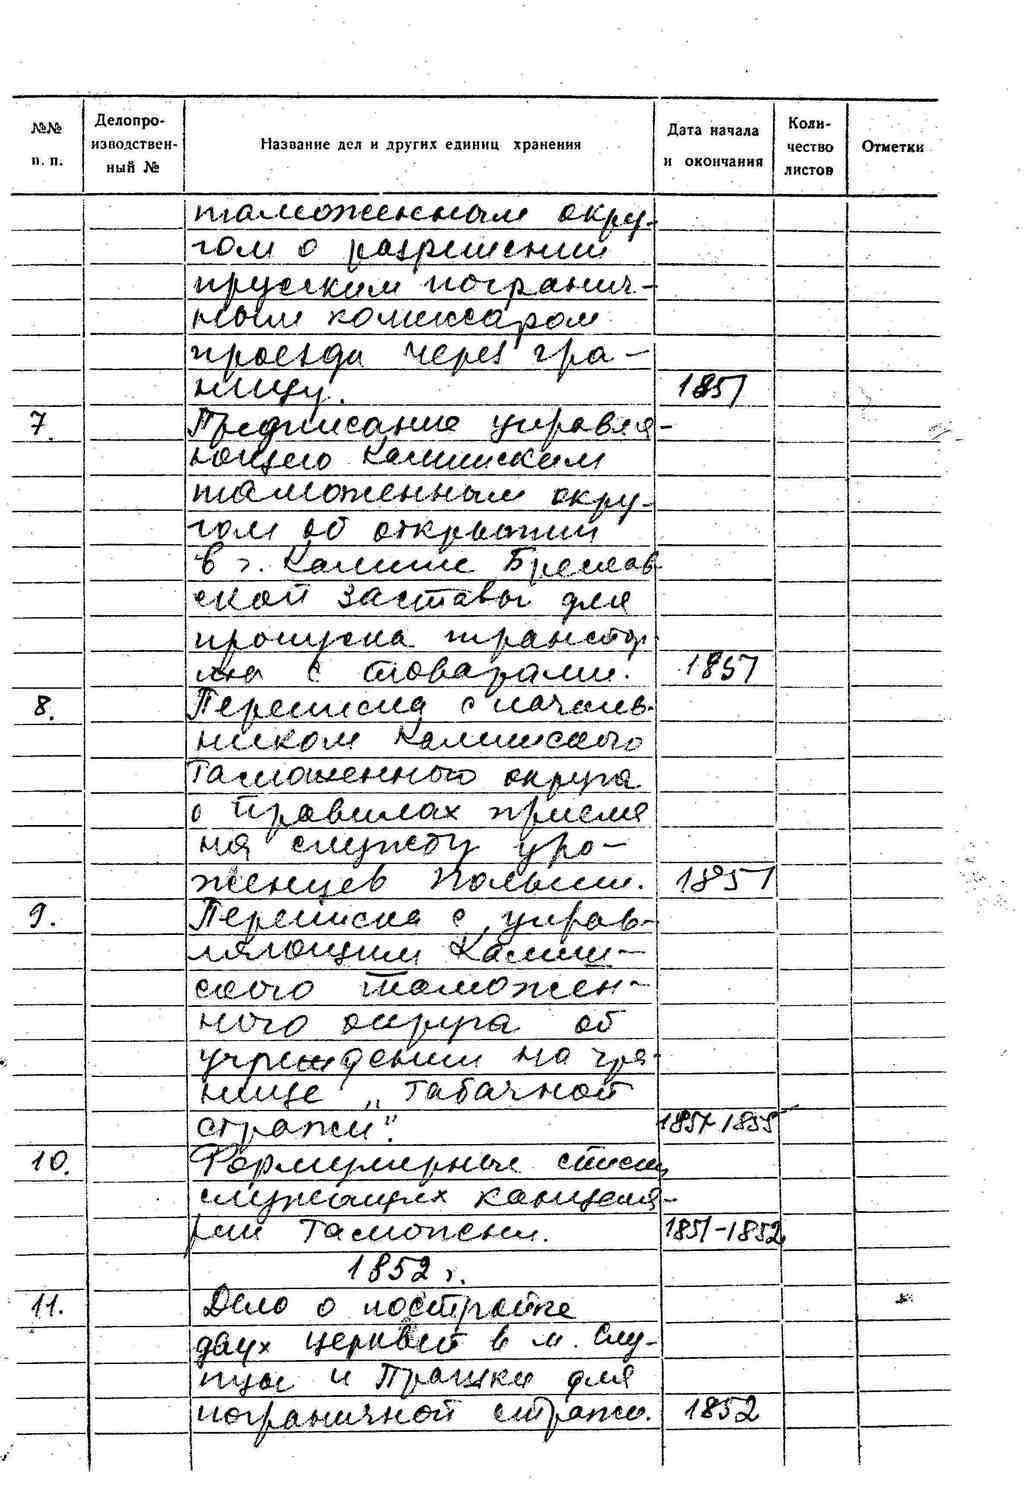 №№ п. п. Делопро-изводствен-ный № Название дел и других единиц хранения Дата начала и окончания Коли-чество листов Отметки
таможенным окру-
гом о разрешении
прусским погранич-
ным комиссаром
проезда через гра-
ницу. 1851
7. Предписание управля-
ющего Калишским
таможенным окру-
гом об открытии
в г. Калише Бреслав
ской заставы для
пропуска транспор
та с товарами. 1851
8. Переписка с началь-
ником Калишского
Таможенного округа
о правилах приема
на службу уро-
женцев Польши. 1851
9. Переписка с управ-
ляющим Калиш-
ского таможен-
ного округа об
учреждении на гра-
нице „Табачной
стражи". 1851-1855
10. Формулярные списки
служащих канцеля-
рии таможни. 1851-1852
1852 г.
11. Дело о постройке
двух церквей в м. Слу-
пцы и Прашки для
пограничной стражи. 1852